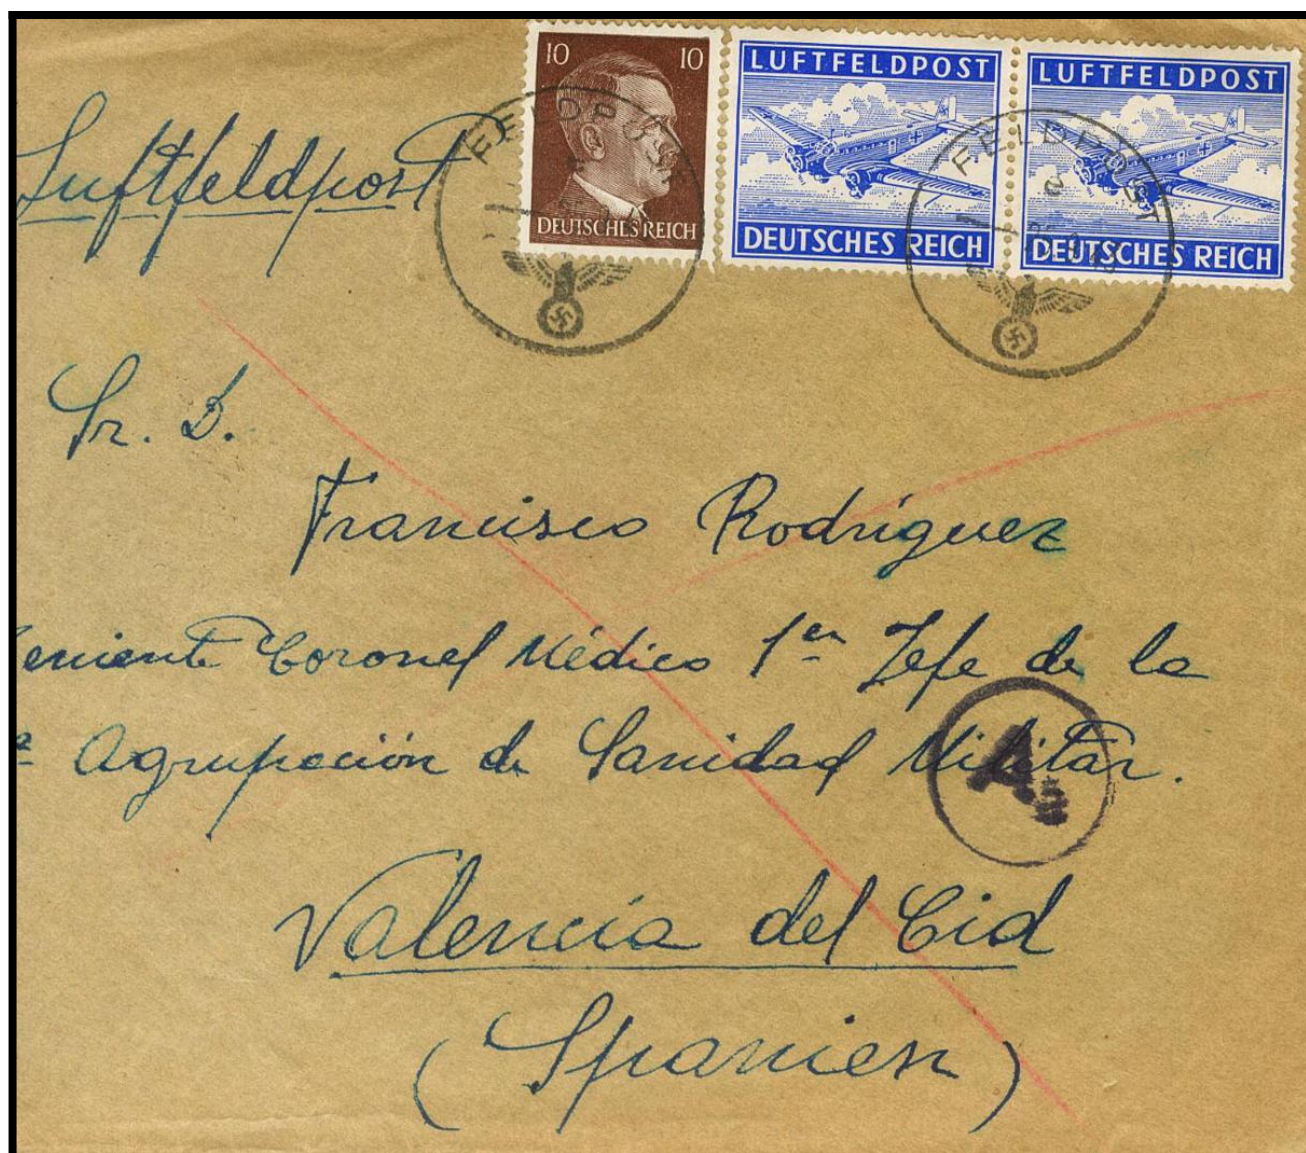 10 10
DEUTSCHES REICH
LUFTFELDPOST
DEUTSCHES REICH
LUFTFELDPOST
DEUTSCHES REICH
FELDPOST
FELDPOST
Luftfeldpost
Sr. D.
Francisco Rodríguez
Teniente Coronel Médico 1er Jefe de la
ª Agrupación de Sanidad Militar.
A
Valencia del Cid
(Spanien)